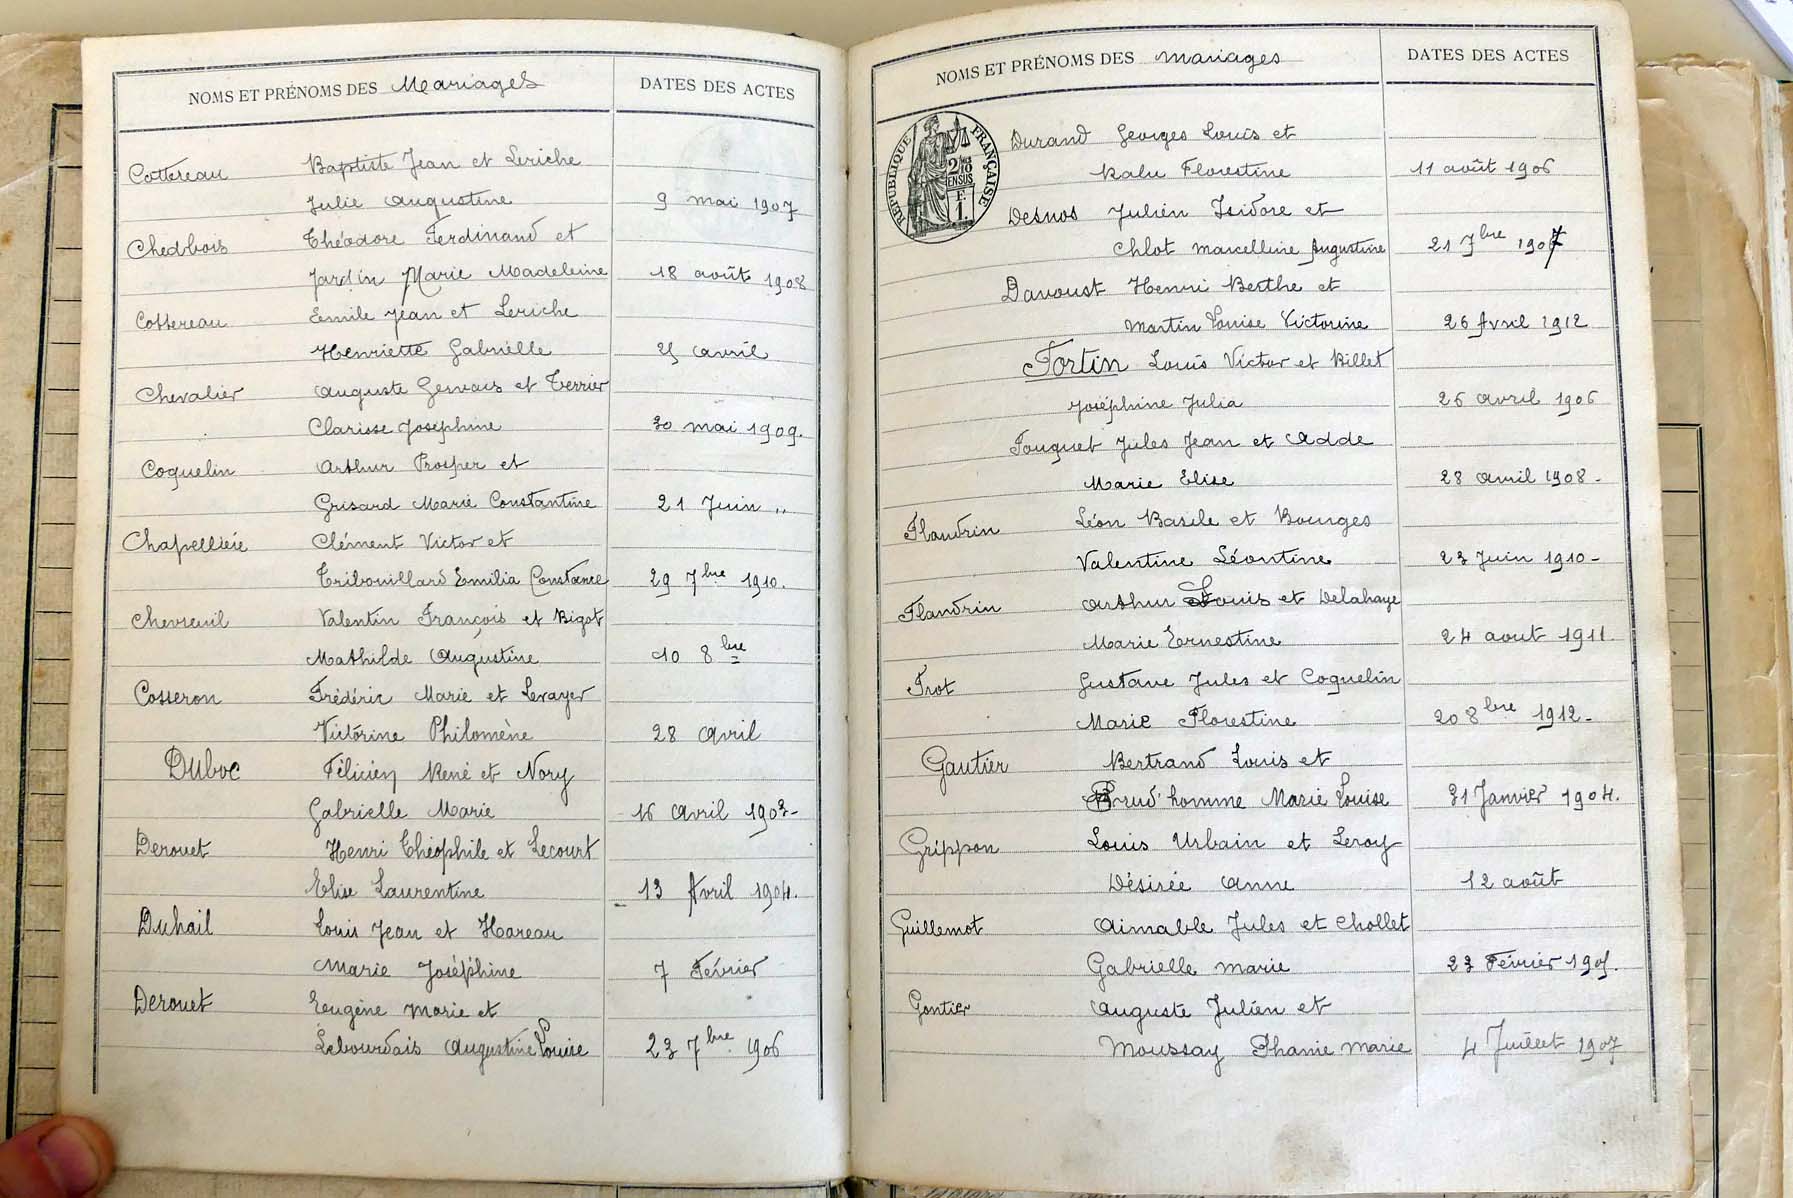 NOMS ET PRÉNOMS DES Mariages DATES DES ACTES
Cottereau Baptiste Jean et Leriche
Julie Augustine 9 mai 1907
Chedbois Théodore Ferdinand et
Jardin Marie Madeleine 18 août 1908
Cottereau Emile Jean et Leriche
Henriette Gabrielle avril
Chevalier Auguste Gervais et Terrier
Clarisse Joséphine 30 mai 1909.
Coquelin Arthur Prosper et
Grisard Marie Constantine 21 Juin "
Chapellière Clément Victor et
Tribouillard Emilia Constance 29 7bre 1910.
Chevreuil Valentin François et Bigot
Mathilde Augustine 10 8bre
Cosseron Frédéric Marie et Levayer
Victorine Philomène 28 Avril
Duboc Félicien René et Nory
Gabrielle Marie 16 Avril 1903-
Derouet Henri Théophile et Lecourt
Elise Laurentine 13 Avril 1904.
Duhail Louis Jean et Hareau
Marie Joséphine 7 Février
Derouet Eugène Marie et
Lebourdais Augustine Louise 23 7bre 1906
NOMS ET PRÉNOMS DES mariages DATES DES ACTES
RÉPUBLIQUE FRANÇAISE
2/10
EN SUS
F
1.
Durand Georges Louis et
Florestine 11 août 1906
Desnos Julien Isidore et
Chlot Marcelline Augustine 21 7bre 1907
Davoust Henri Berthe et
Martin Louise Victorine 26 Avril 1912
Fortin Louis Victor et Billet
Joséphine Julia 26 avril 1906
Fouquet Jules Jean et Adde
Marie Elise 28 avril 1908-
Flandrin Léon Basile et Bourges
Valentine Léontine 23 Juin 1910-
Flandrin Arthur Louis et Delahaye
Marie Ernestine 24 aout 1911.
Frot Gustave Jules et Coquelin
Marie Florestine 20 8bre 1912-
Gautier Bertrand Louis et
Prud'homme Marie Louise 31 Janvier 1904.
Grippon Louis Urbain et Leroy
Désirée Anne 12 août
Guillemot Aimable Jules et Chollet
Gabrielle Marie 23 Février 1905.
Gontier Auguste Julien et
Moussay Marie 4 Juillet 1907